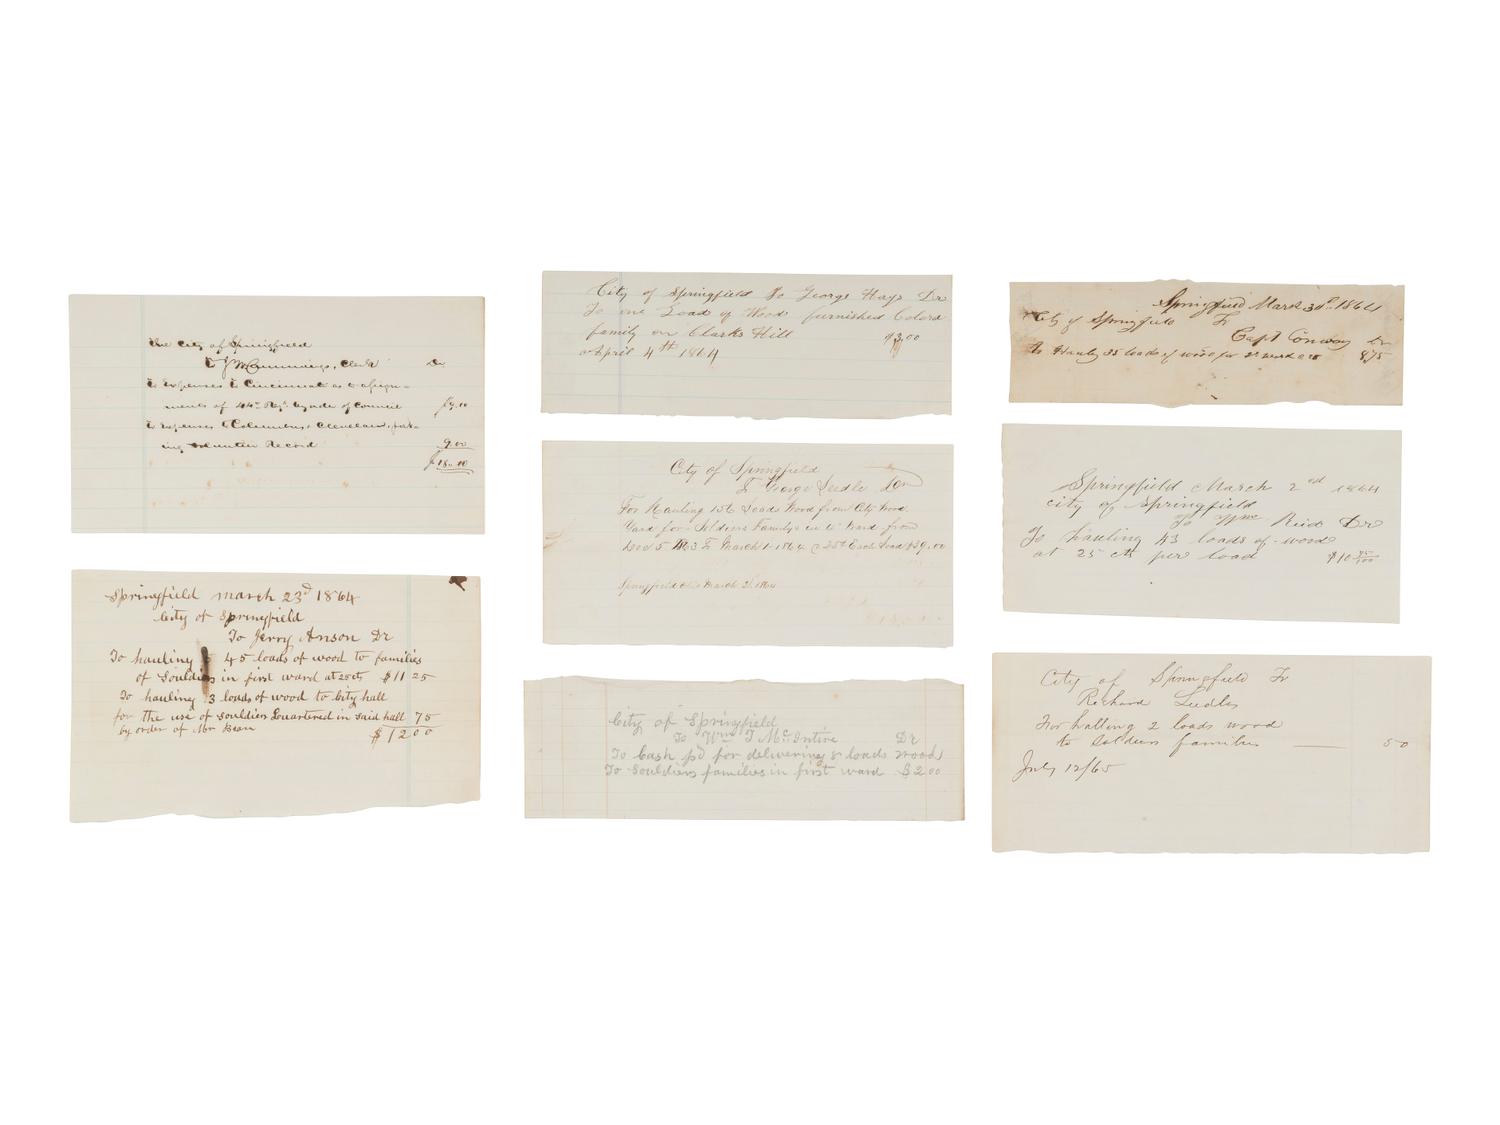 The City of Springfield
To J M Cummings, Clerk Dr
to expenses to Cincinnati as to assign-
ments of 44th Regt. by order of Council $9.10
to expenses to Columbus & Cleveland, 
ing volunteer Record 9.00
$18.10
Springfield march 23d 1864
City of Springfield
To Jerry Anson Dr
To hauling 45 loads of wood to families
of Souldiers in first ward at 25 cts $11 25
To hauling 3 loads of wood to City hall
for the use of souldiers Quartered in said hall 75
by order of Mr Bean
$12 00
City of Springfield To George Hays Dr
To one Load of Wood furnished Colord
family on Clarks Hill $3.00
April 4th 1864
City of Springfield
To George Seedle Dr
For Hauling 156 Loads Wood from City Wood
Yard for Soldiers Familys in Ward from
Dec 5 1863 To March 1 1864 @ 25 ct Each Load $39.00
Springfield Ohio March 2 1864
City of Springfield
To Wm T McIntire Dr
To Cash pd for delivering 8 loads wood
To Souldiers families in first ward $2 00
Springfield March 30th 1864
City of Springfield To
Capt Conway Dr
To Hauling 35 loads of wood for 2d ward 8.75
Springfield March 2nd 1864
City of Springfield
To Wm Reid Dr
To hauling 43 loads of wood
at 25 cts per load $10 75/100
City of Springfield To
Richard Leedles
For halling 2 loads wood
to Soldiers families — 50
July 12/65